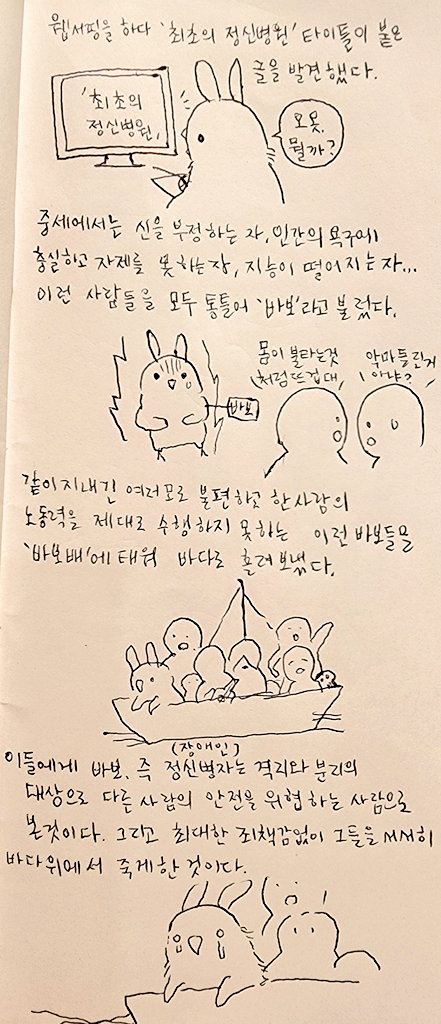 웹서핑을 하다 '최초의 정신병원' 타이틀이 붙은
글을 발견했다.
'최초의
정신병원,
오옷,
뭘까?
중세에서는 신을 부정하는 자, 인간의 욕구에
충실하고 자제를 못하는 자, 지능이 떨어지는 자...
이런 사람들을 모두 통틀어 '바보'라고 불렀다.
바보
몸이 불타는것
처럼 뜨겁대,
악마들린거
아냐?
같이 지내긴 여러모로 불편하고 한사람의
노동력을 제대로 수행하지 못하는 이런 바보들을
'바보배'에 태워 바다로 흘려보냈다.
(장애인)
이들에게 바보. 즉 정신병자는 격리와 분리의
대상으로 다른 사람의 안전을 위협하는 사람으로
본것이다. 그리고 최대한 죄책감없이 그들을 서서히
바다위에서 죽게한 것이다.